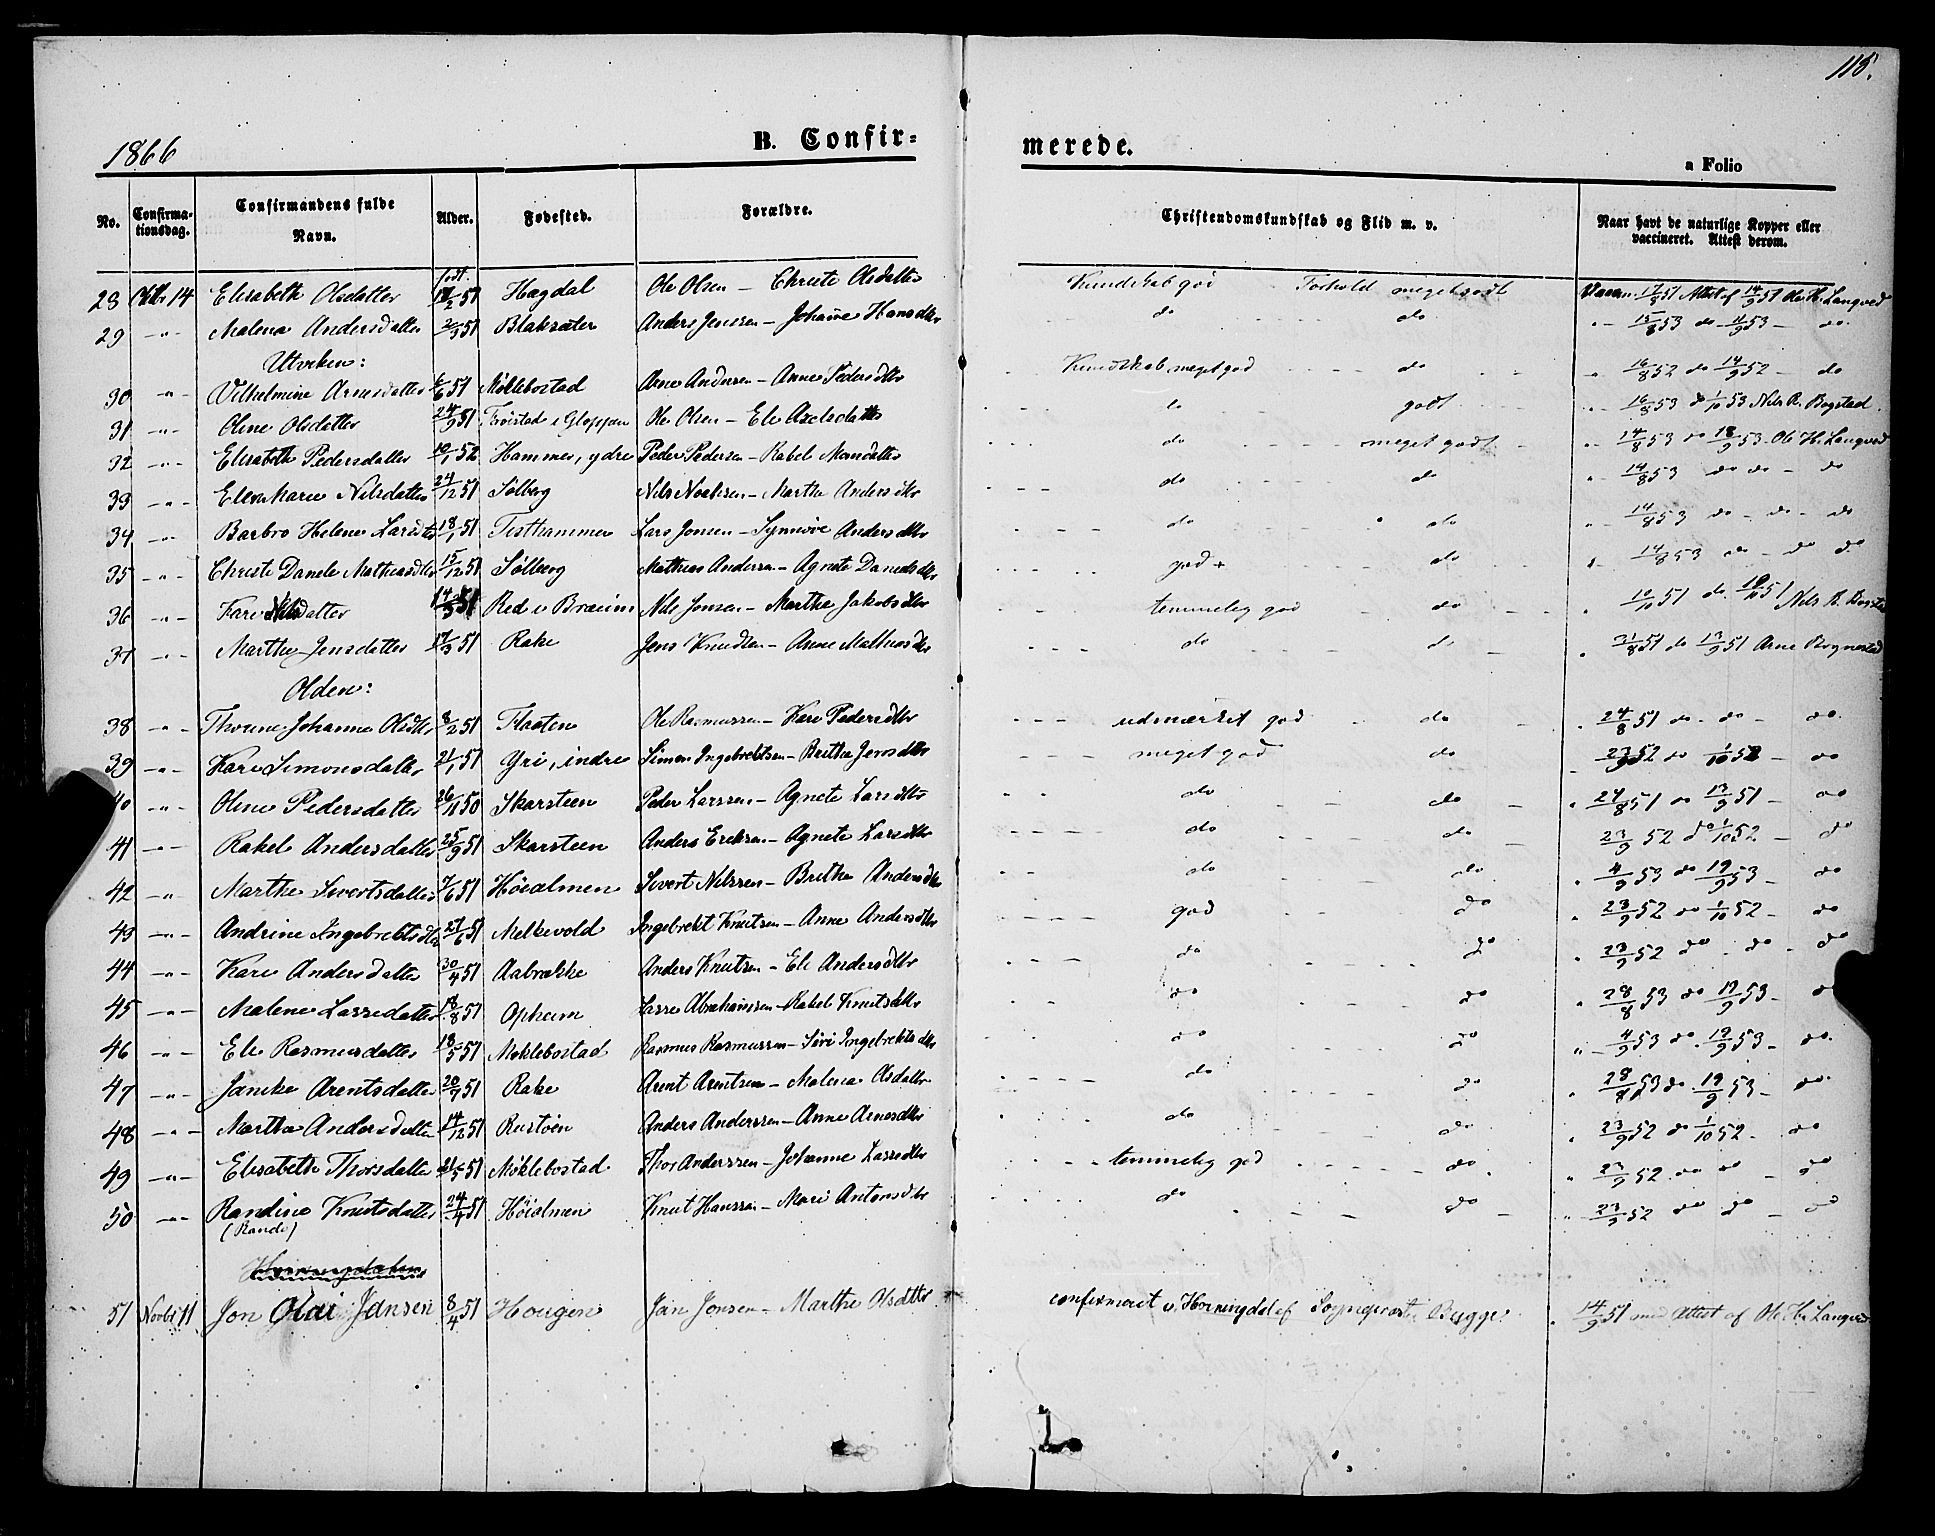 115.
1866
B. Confirmerede.
a Folio
No. Confirmationsdag. Confirmandens fulde Navn. Alder. Fødested. Forældre. Christendomskundskab og Flid m. v. Naar havt de naturlige Kopper eller vaccineret. Attest derom.
født.
28 Octbr 14 Elisabeth Olsdatter /2 51 Hagdal Ole Olsen - Christi Olsdatter Kundskab god Forhold meget godt Vaccin. 17/8 51 Attest af 14/9 51 Ole H. Langved
29 -"- Malena Andersdatter 2/3 51 Blaksæter Anders Jenssen - Johanne Hansdtr do do "- 15/8 53 do 11/9 53 - do.
Utviken:
30 -"- Vilhelmine Arnesdatter 6/6 51 Møklebostad Arne Andersen - Anne Pedersdtr Kundskab meget god do " 16/8 52 do 14/9 52 - do
31 -"- Oline Olsdatter 24/9 51 Frøistad i Gloppen Ole Olsen - Eli Axelsdatter do godt "- 16/8 53 do 1/10 53 Nils R. Bogstad.
32 -"- Elisabeth Pedersdatter 10/1 52 Hammer, ydre Peder Pedersen - Rakel Monsdatter do meget godt "- 14/8 53 do 18/9 53. Ole H. Langved
33 -"- Elen Marie Nilsdatter 24/12 51 Sølberg Nils Noahsen - Marthe Andersdtr do do " 14/8 53 do do - do
34 -"- Barbro Helene Larsdtr 18/1 51 Tisthammer Lars Jonsen - Synnøve Andersdtr do do " 14/8 53 do - do - do
35 -"- Christi Danele Mathiasdtr 15/12 51 Sølberg Mathias Andersen - Agnete Danielsdtr god + do " 14/8 53 do - do do
36 -"- Kari Nilsdatter 14/3 51 Red i Breim Nils Jonsen - Marthe Jakobsdtr temmelig god do " 10/10 51 do 19/10 51 Nils R. Bogsta
37 -"- Marthe Jensdatter 17/3 51 Rake Jens Knudsen - Anne Mathiasdtr do do " 31/8 51 do 13/9 51 Arne Bognestad
Olden:
38 -"- Thorine Johanne Olsdtr 8/2 51 Flaaten Ole Rasmussen - Kari Pedersdtr udmærket god do " 24/8 51 do. do - do.
39 -"- Kari Simonsdatter 21/1 51 Gri, indre Simon Ingebrektsen - Brithe Jensdtr meget god do " 23/9 52 do 1/10 52 - do
40 -"- Oline Pedersdatter 26/11 50 Skarsteen Peder Larssen - Agnete Larsdtr do do " 24/8 51 do 13/9 51 - do
41 -"- Rakel Andersdatter 25/9 51 Skarsteen Anders Eriksen - Agnete Larsdtr do do 23/9 52 do 1/10 52 - do
42 -"- Marthe Sivertsdatter 7/6 51 Høialmen Sivert Nilssen - Brithe Andersdtr do do " 4/9 53 do 19/9 53 - do
43 -"- Andrine Ingebrektsdtr 27/6 51 Melkevold Ingebrekt Knutsen - Anne Andersdtr god do " 23/9 52 do 1/10 52. - do
44 -"- Kari Andersdatter 30/4 51 Aabrække Anders Knutsen - Eli Andersdtr do do " 23/9 52 do . do - do
45 -"- Malene Lassedatter 18/8 51 Opheim Lasse Abrahamsen - Rakel Knutsdtr do do " 28/8 53 do 19/9 53 - do
46 -"- Eli Rasmusdatter 18/5 51 Møklebostad Rasmus Rasmussen - Siri Ingebrektsdtr do do " 4/9 53 do. 19/9 53 - do.
47 -"- Janike Arentsdatter 20/9 51 Rake Arent Arentsen - Malena Olsdatter do do " 28/8 53 do. 19/9 53 - do.
48 -"- Marthe Andersdatter 14/12 51 Rustøen Anders Anderssen - Anne Arnesdtr do do " 23/9 52 do 1/10 52 - do
49 -"- Elisabeth Thorsdatter 21/5 51 Møklebostad Thor Anderssen - Johanne Lassedtr temmelig god do " 23/9 52. do do - do
50 -"- Randine Knutsdatter 24/4 51 Høialmen Knut Hanssen - Mari Antonsdtr do do " 23/9 52 do do - do
(Randi)
51 Novbr 11 Jon Olai Jansen 8/4 51 Hougen Jan Jonsen - Marthe Olsdatter confirmeret i Horningdal af Sognepræst Bugge. " 14/9 51 med Attest af Ole H. Langved